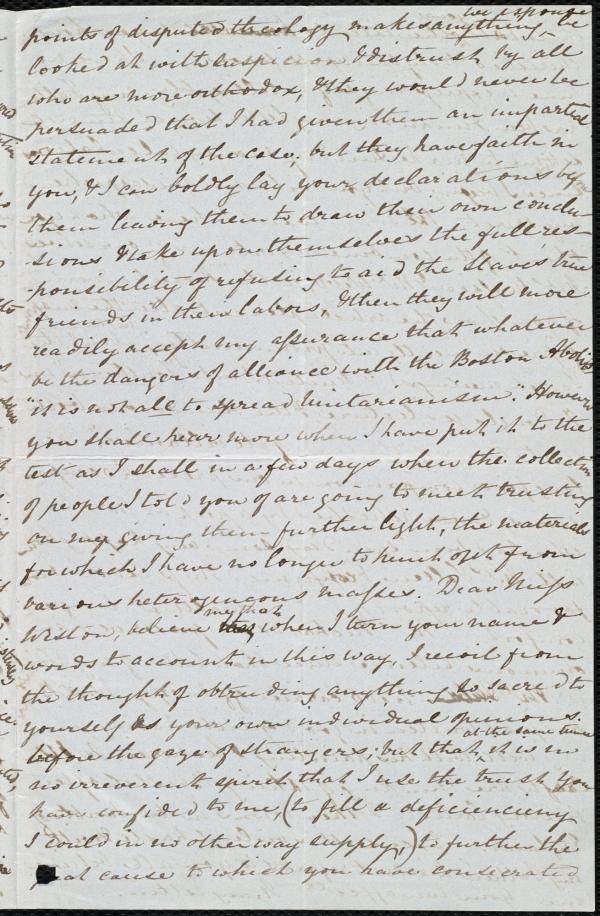 we espouse
points of disputed theology makes anything, be
looked at with suspicion & distrust by all
who are more orthodox, & they would never be
persuaded that I had given them an impartial
statement of the case; but they have faith in
you, & I can boldly lay your declarations by
them leaving them to draw their own conclu-
sions & take upon themselves the full res-
-ponsibility of refusing to aid the Slave's true
friends in their labors, & then they will more
readily accept my assurance that whatever
be the dangers of alliance with the Boston
"it is not all to spread Unitarianism". However
you shall hear more when I have put it to the
test as I shall in a few days when the collection
of people I told you of are going to meet trusting
on my giving them further light, the materials
for which I have no longer to hunt out from
various heterogeneous masses. Dear Miss
Weston, believe me that when I turn your name &
words to account in this way, I recoil from
the thought of obtruding anything so sacred to
yourself as your own individual opinions
before the gaze of strangers; but that at the same time it is in
no irreverent spirit that I use the trust you
have confided to me, (to fill a deficiencieny
I could in no other way supply,) to further the
great cause to which you have consecrated